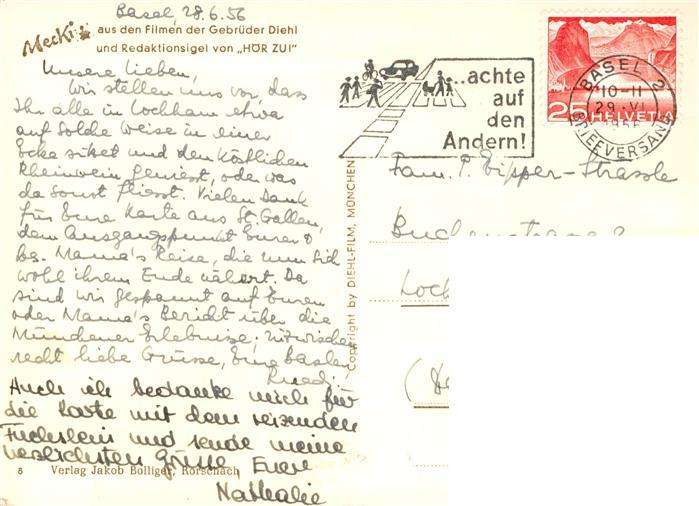 Basel, 28.6.56
Mecki aus den Filmen der Gebrüder Diehl
und Redaktionsigel von „HÖR ZU!"
Unsere Lieben,
Wir stellen uns vor, dass
Ihr alle in Lochham etwa
auf solche Weise in einer
Ecke sitzet und den köstlichen
Rheinwein geniesst, oder was
da sonst fliesst. Vielen Dank
für Eure Karte aus St. Gallen,
dem Ausgangspunkt Eurer
bg. Mama's Reise, die nun sich
wohl ihrem Ende nähert. Da
sind wir gespannt auf Euren
oder Mama's Bericht über die
Münchener Erlebnisse. Inzwischen
recht liebe Grüsse, Eure Basler
Ruedi
Auch ich bedanke mich für
die Karte mit dem reizenden
Füchslein und sende meine
herzlichsten Grüsse, Eure
Nathalie
8 Verlag Jakob Bolliger, Rorschach
Copyright by DIEHL-FILM, MÜNCHEN
...achte
auf
den
Andern!
BASEL 2
10-11
29.VI.
1956
BRIEFVERSAND
25 HELVETIA
Fam. P. Eipper-Strassle
Loch